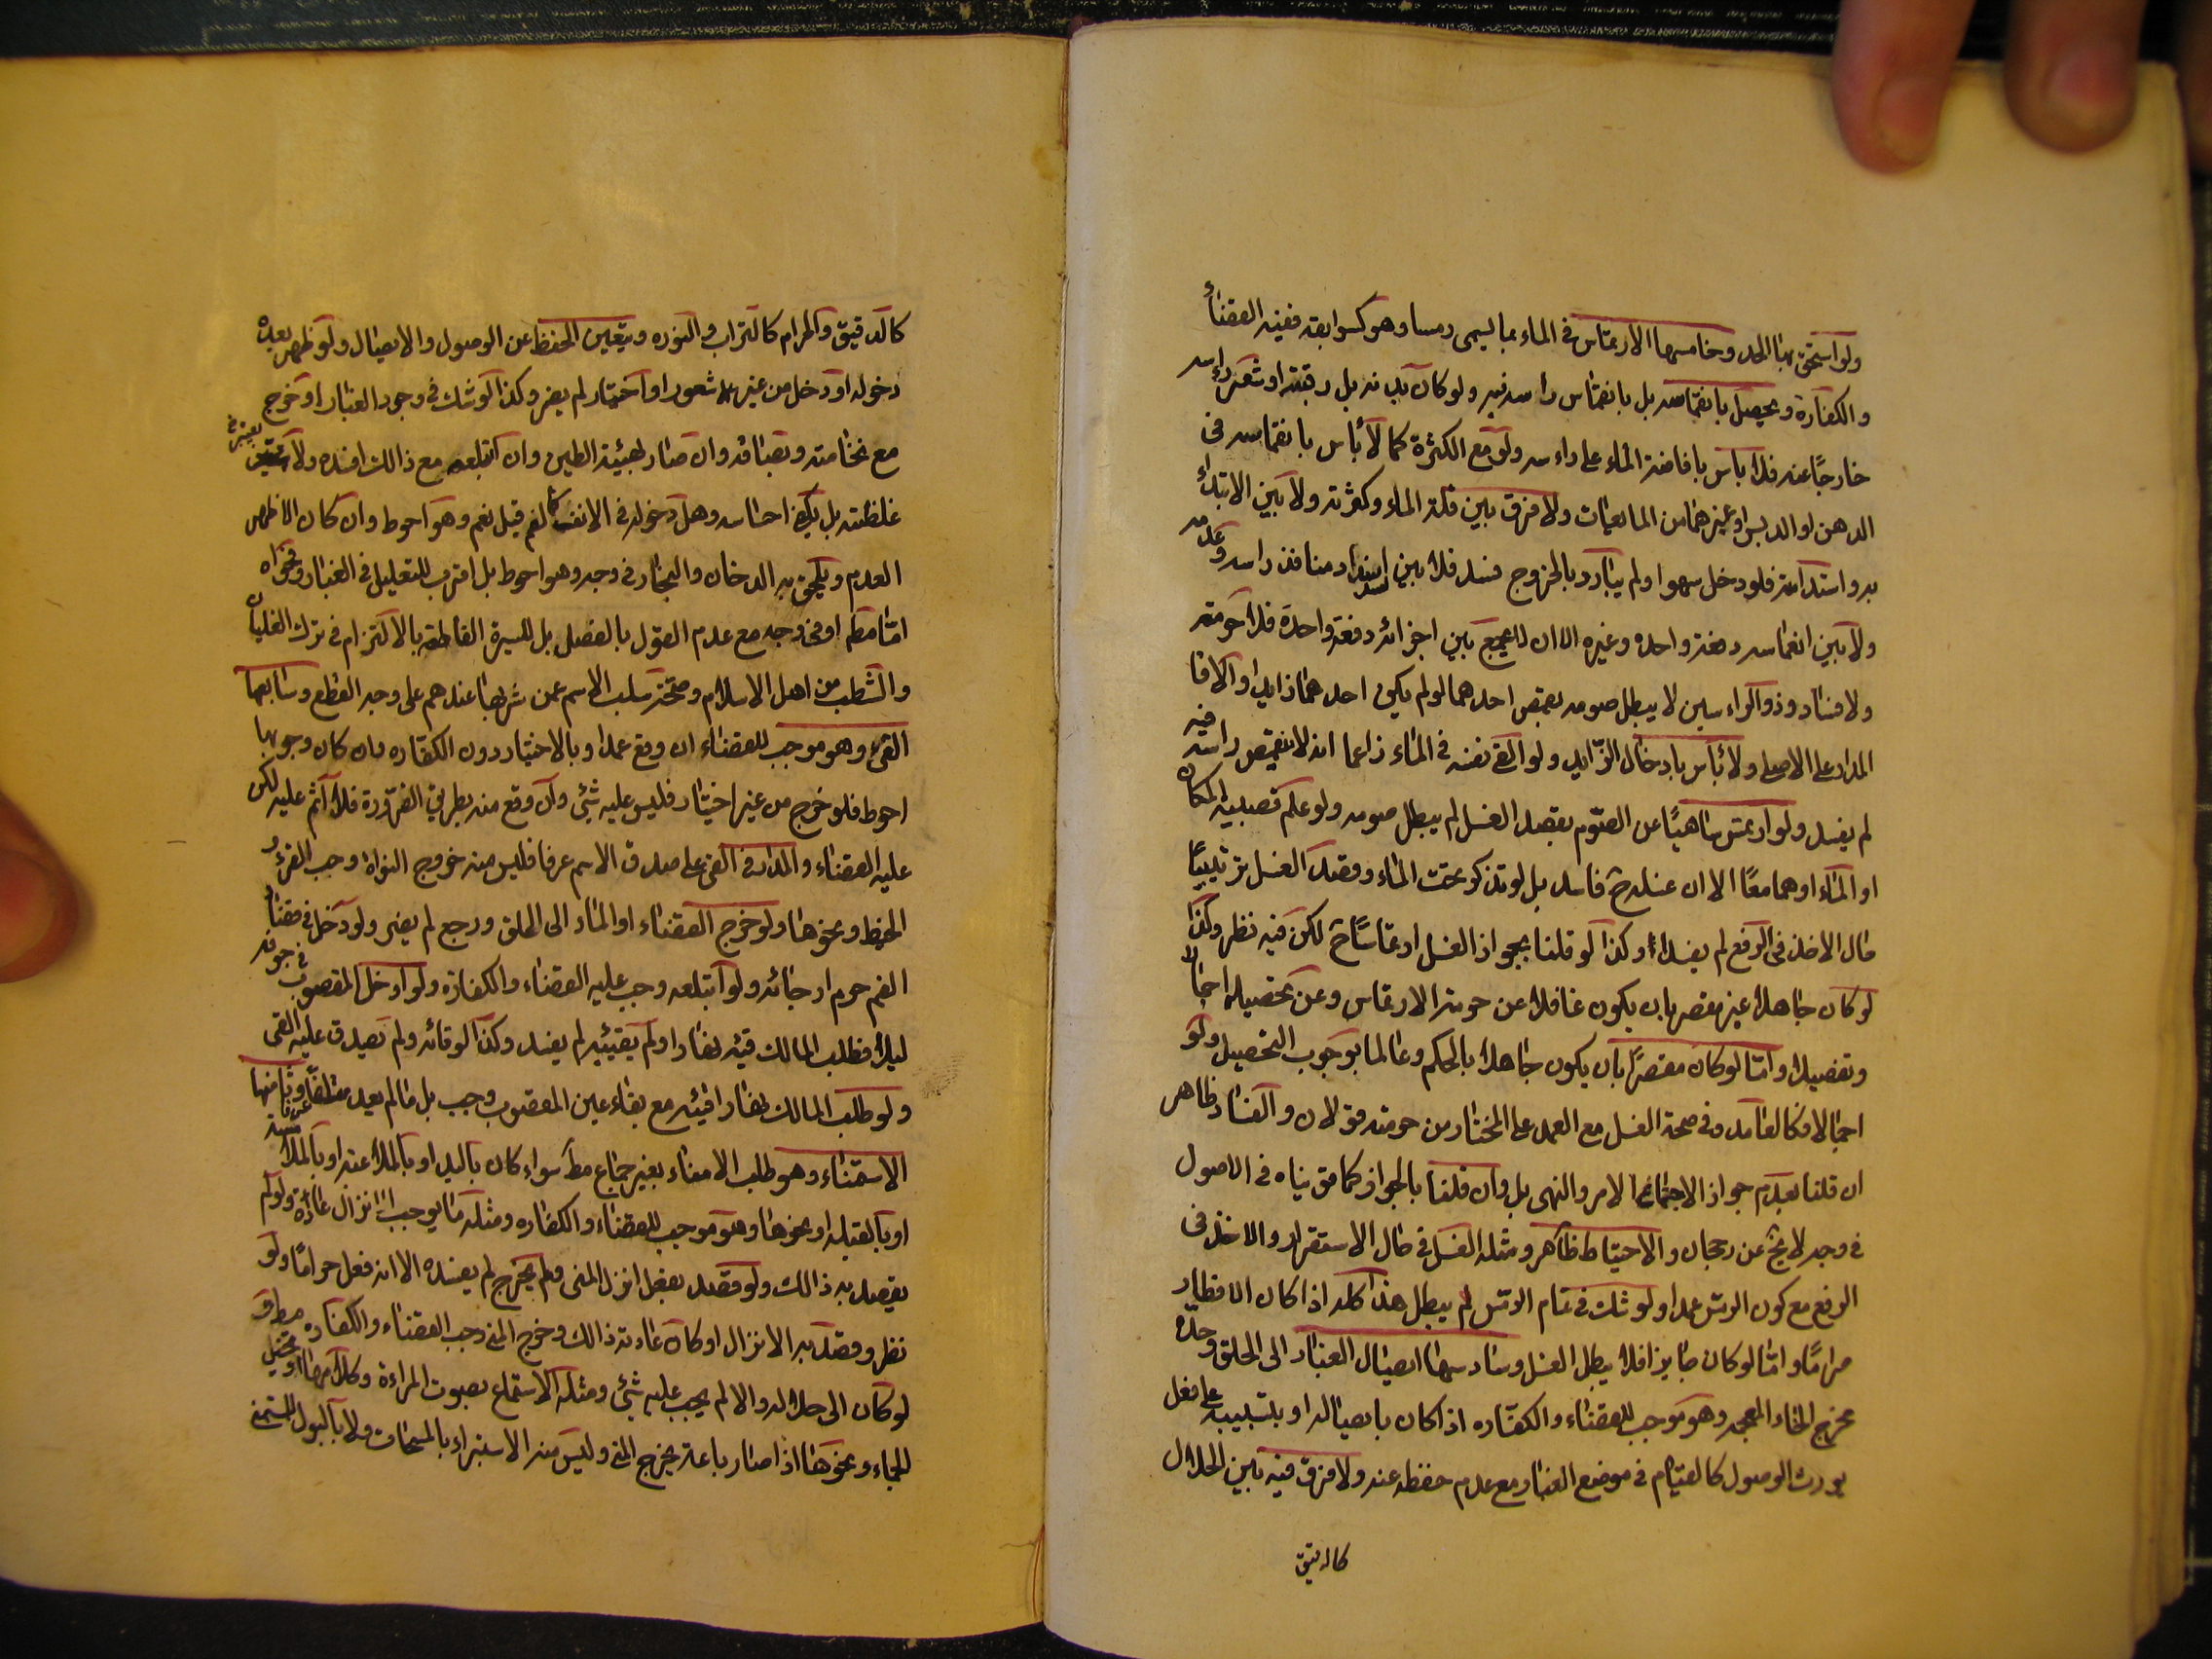 ولو استحق بها الحد وخامسها الارتماس في الماء بما يسمى رمسا وهو كسوابقه ففيه القضاء
والكفارة ويحصل بانغماسه بل بانغماس راسه فيه ولو كان بدنه بل رقبته او شعر راسه
خارجًا عنه فلا باس بافاضة الماء على راسه ولو مع الكثرة كما لا باس بانغماسه في
الدهن او الدبس او غيرهما من المايعات ولا فرق بين قلة الماء وكثرته ولا بين الابتداء
به واستدامته فلو دخل سهوا ولم يبادر بالخروج فسد فلا بين انسداد منافذ راسه وعدمه
ولا بين انغماسه دفعة واحدة وغيره الا ان لا يجمع بين اجزائه دفعة واحدة فلا حرمة
ولا فساد وذو الراسين لا يبطل صومه بغمس احدهما لو لم يكن احدهما زايدا والا فا
المدار على الاصلي ولا باس بادخال الزايد ولو القى نفسه في الماء زاعما انه لا ينغمس راسه فيه
لم يفسد ولو ارتمس ساهيًا عن الصوم بقصد الغسل لم يبطل صومه ولو علم غصبية المكان
او الماء او هما معًا الا ان غسله ح فاسد بل لو تذكر تحت الماء وقصد الغسل ترتيبيًا
حال الاخذ في الرفع لم يفسدا وكذا لو قلنا بجواز الغسل ارتماسًا ح لكن فيه نظر وكذا
لو كان جاهلا غير مقصر بان يكون غافلا عن حرمة الارتماس وعن تحصيلها اجمالا
وتفصيلا واما لو كان مقصرًا بان يكون جاهلا بالحكم وعالما بوجوب التحصيل ولو
اجمالا فكالعامد وفي صحة الغسل مع العمد على المختار من حرمته قولان والفساد ظاهر
ان قلنا بعدم جواز الاجتماع الامر والنهي بل وان قلنا بالجواز كما قويناه في الاصول
في وجه لا يخ عن رجحان والاحتياط ظاهر ومثله الغسل في حال الاستقرار والاخذ في
الرفع مع كون الرمس عمدا ولو شك في تمام الرمس لم يبطل هذا كله اذا كان الافطار
حرامًا واما لو كان جايزا فلا يبطل الغسل وسادسها ايصال الغبار الى الحلق وحده
مخرج الخاء المعجمه وهو موجب للقضاء والكفاره اذا كان بايصاله او بتسبيبه على فعل
يورث الوصول كالقيام في موضع الغبار مع عدم حفظه عنه ولا فرق فيه بين الحلال
كالدقيق
كالدقيق والحرام كالتراب والنوره ويتعين الحفظ عن الوصول والايصال ولو ظهر بعده
دخوله او دخل من غير شعور او اختيار لم يضر وكذا لو شك في وجود الغبار او خرج
مع نخامته وبصاقه وان صار لهيئة الطين وان ابتلعه مع ذالك افسده ولا يعتبر
غلظته بل يكفي احساسه وهل دخوله في الانف كالفم قيل نعم وهو احوط وان كان الاظهر
العدم ويلحق به الدخان والبخار في وجه وهو احوط بل اقرب للتعليل في الغبار وفحواه
اما مطم او في وجه مع عدم القول بالفصل بل للسيرة القاطعة بالالتزام في ترك الغليان
والشطب من اهل الاسلام وصحة سلب الاسم عمن شربها عندهم على وجه القطع وسابعها
القئ وهو موجب للقضاء ان وقع عمدا وبالاختيار دون الكفاره وان كان وجوبها
احوط فلو خرج من غير اختيار فليس عليه شئ وان وقع منه بطريق الضرورة فلا اثم عليه لكن
عليه القضاء والمدار في القئ على صدق الاسم عرفا فليس منه خروج النواة وحب القرع و
الخيط ونحوها ولو خرج القضاء او الماء الى الحلق ورجع لم يضر ولو دخل في فضاء
الفم حرم ارجائه ولو ابتلعه وجب عليه القضاء والكفارة ولو ادخل المغصوب في جوفه
ليلا فطلب المالك قيئه نهارا ولم يقيئه لم يفسد وكذا لو قائه ولم يصدق عليه القئ
ولو طلب المالك نهارا قيئه مع بقاء عين المغصوب وجب بل ما لم يعد متلفًا عرفا وثامنها
الاستمناء وهو طلب الامناء بغير جماع مط سواء كان باليد او بالملاعبه او بالملامسه
او بالقبله او نحوها وهو موجب للقضاء والكفاره ومثله ما يوجب انزال عادة ولو لم
يقصد به ذالك ولو قصد بفعل انزال المني ولم يخرج لم يفسده الا انه فعل حرامًا ولو
نظر وقصد به الانزال او كان عادته ذالك وخرج المني وجب القضاء والكفاره مط ولو
لو كان الى حلاله والا لم يجب عليه شئ ومثله الاستماع بصوت المراءة وكلامها او تخيل
للجماء ونحوها اذا صار باعث يخرج المني وليس منه الاستبراء بالمسحات ولا بالبول للستمنى